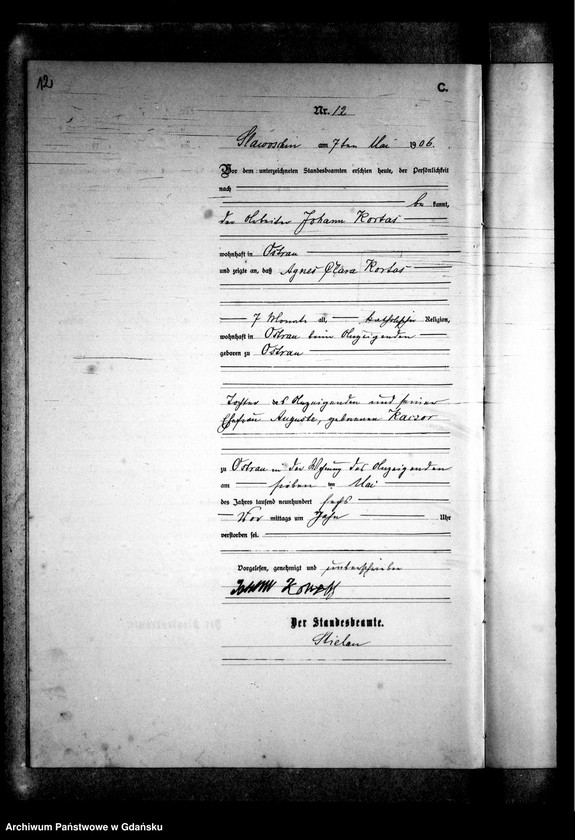 12
C.
Nr. 12
Slawoschin am 7ten Mai 1906.
Vor dem unterzeichneten Standesbeamten erschien heute, der Persönlichkeit
nach
be kannt,
der Arbeiter Johann Kortas
wohnhaft in Ostrau
und zeigte an, daß Agnes Clara Kortas
7 Monate alt, katholischer Religion,
wohnhaft in Ostrau beim Anzeigenden
geboren zu Ostrau
Tochter des Anzeigenden und seiner
Ehefrau Auguste, geborenen
zu Ostrau in der Wohnung des Anzeigenden
am sieben ten Mai
des Jahres tausend neunhundert sechs
Vor mittags um zehn Uhr
verstorben sei.
Vorgelesen, genehmigt und unterschrieben
Der Standesbeamte.
Archiwum Państwowe w Gdańsku